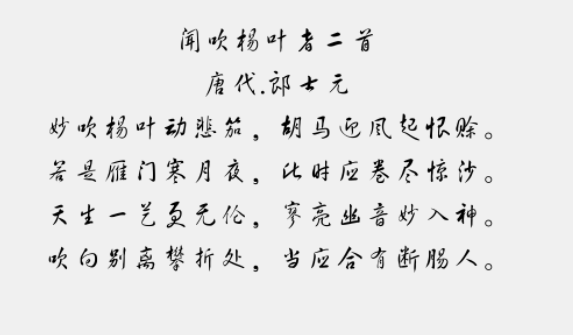 闻吹杨叶者二首
唐代.郎士元
妙吹杨叶动悲笳，胡马迎风起恨赊。
若是雁门寒月夜，此时应卷尽惊沙。
天生一艺更无伦，寥亮幽音妙入神。
吹向别离攀折处，当应合有断肠人。